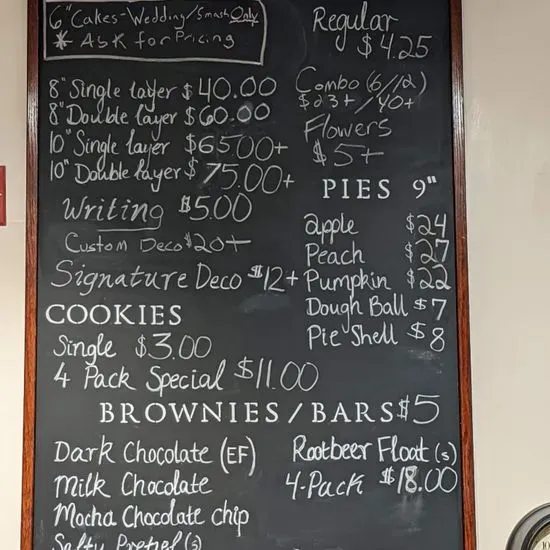 6" Cakes-Wedding/Smash Only
* Ask for Pricing
8" Single layer $40.00
8" Double layer $60.00
10" Single layer $65.00+
10" Double layer $75.00+
Writing $5.00
Custom Deco $20+
Signature Deco $12+
COOKIES
Single $3.00
4 Pack Special $11.00
Regular
$4.25
Combo (6/12)
$23+/40+
Flowers
$5+
PIES 9"
apple $24
Peach $27
Pumpkin $22
Dough Ball $7
Pie Shell $8
BROWNIES/BARS $5
Dark Chocolate (EF)
Milk Chocolate
Mocha Chocolate chip
Salty Pretzel (s)
Rootbeer Float (s)
4-Pack $18.00